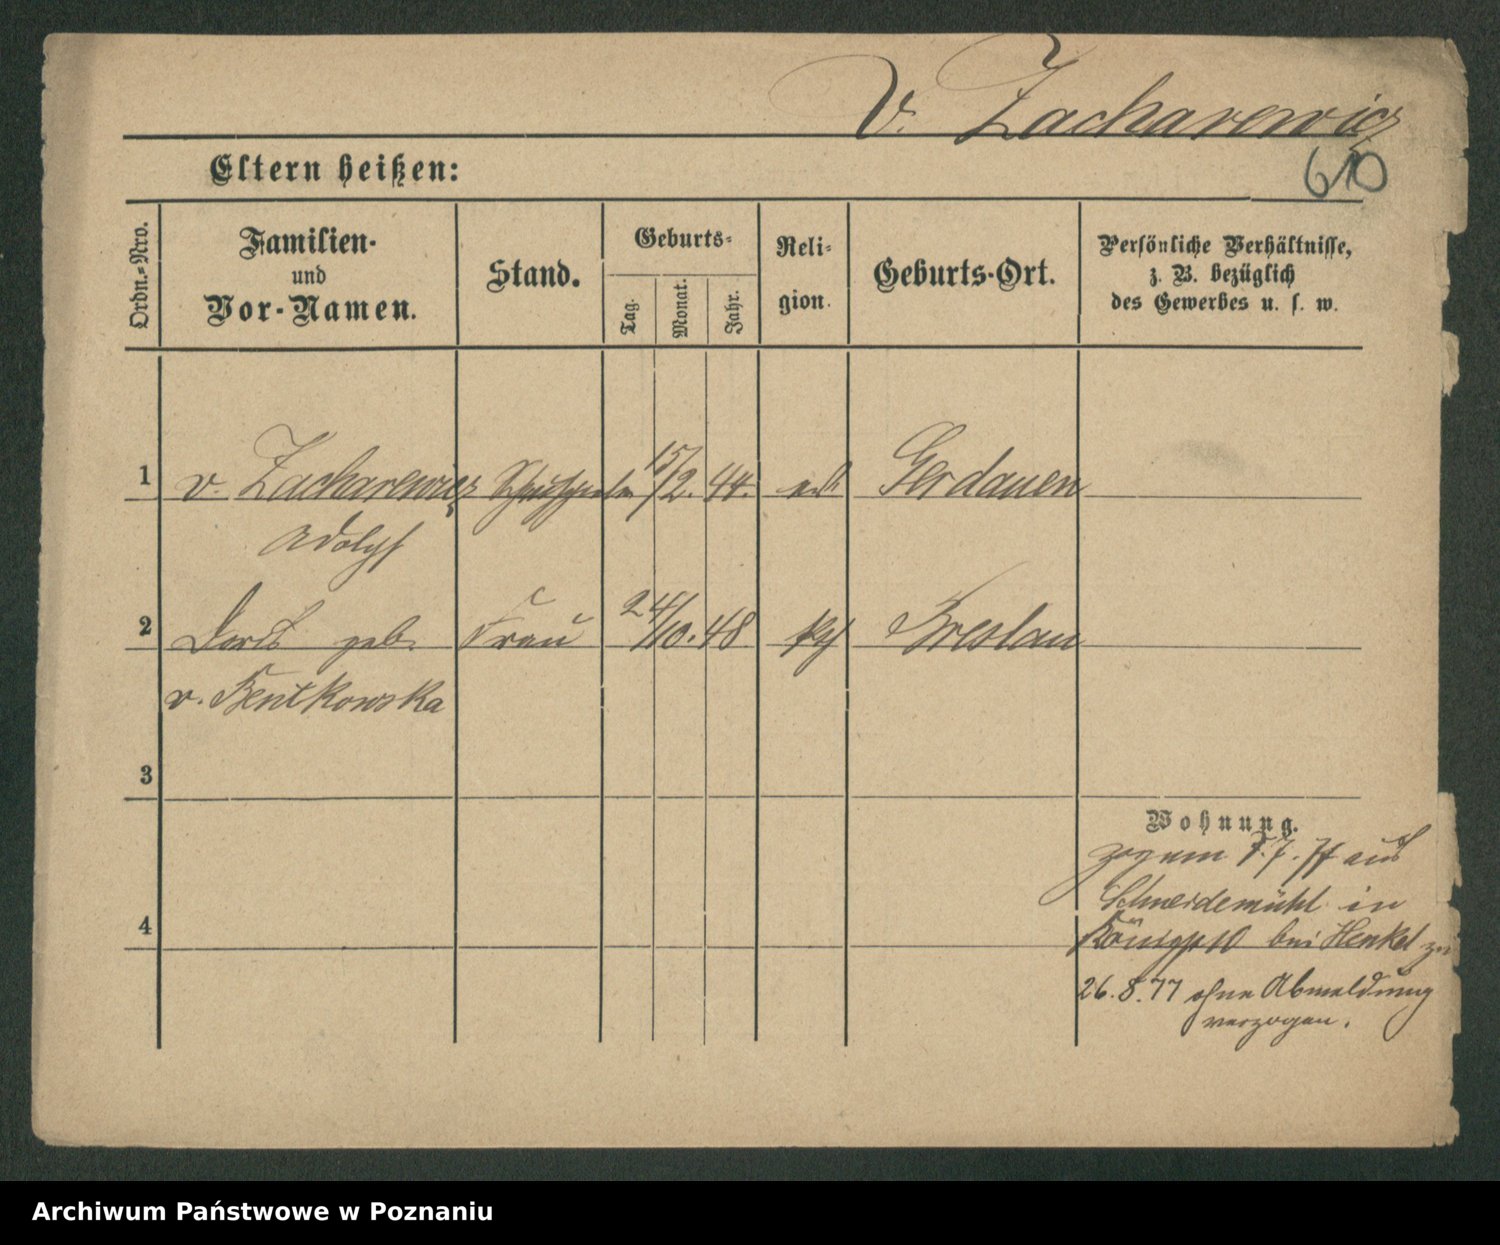 v. Zacharewicz
610
Eltern heißen:
Ordn.-Nro.
Familien-
und
Vor-Namen.
Stand.
Geburts-
Tag.
Monat.
Jahr.
Reli-
gion.
Geburts-Ort.
Persönliche Verhältnisse,
z. B. bezüglich
des Gewerbes u. s. w.
1 v. Zacharewicz Schauspieler 15/2. 44. ev. Gerdauen
Adolph
2 Doris geb. Frau 24/10. 48 kth Breslau
v. Bentkowska
3
Wohnung.
zog am 7. 77 aus
Schneidemühl in
4 10 bei Henkel zu
26. 8. 77 ohne Abmeldung
verzogen.
Archiwum Państwowe w Poznaniu